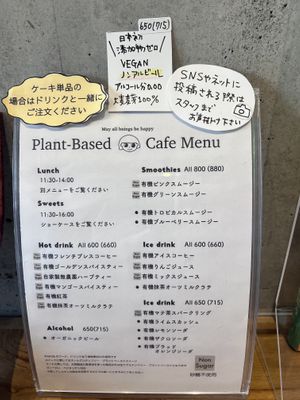 650(715)
日本初
添加物ゼロ
VEGAN
ノンアルビール
アルコール0.00
大麦麦芽100%
ケーキ単品の
場合はドリンクと一緒に
ご注文ください
SNSやネットに
投稿される際は
スタッフまで
お声掛け下さい
May all beings be happy
Plant-Based Cafe Menu
Lunch
11:30-14:00
別メニューをご覧ください
Sweets
11:30-16:00
ショーケースをご覧ください
Smoothies All 800 (880)
有機ピンクスムージー
有機グリーンスムージー
有機トロピカルスムージー
有機ブルーベリースムージー
Hot drink All 600 (660)
有機フレンチプレスコーヒー
有機ゴールデンスパイスティー
自家製無農薬ハーブティー
有機マンゴースパイスティー
有機紅茶
有機抹茶オーツミルクラテ
Alcohol 650(715)
オーガニックビール
Ice drink All 600 (660)
有機アイスコーヒー
有機りんごジュース
有機ミックスジュース
有機抹茶オーツミルクラテ
Ice drink All 650 (715)
有機マテ茶スパークリング
有機ライムスカッシュ
有機レモンソーダ
有機ザクロソーダ
有機ブラッド
オレンジソーダ
Non
Sugar
砂糖不使用